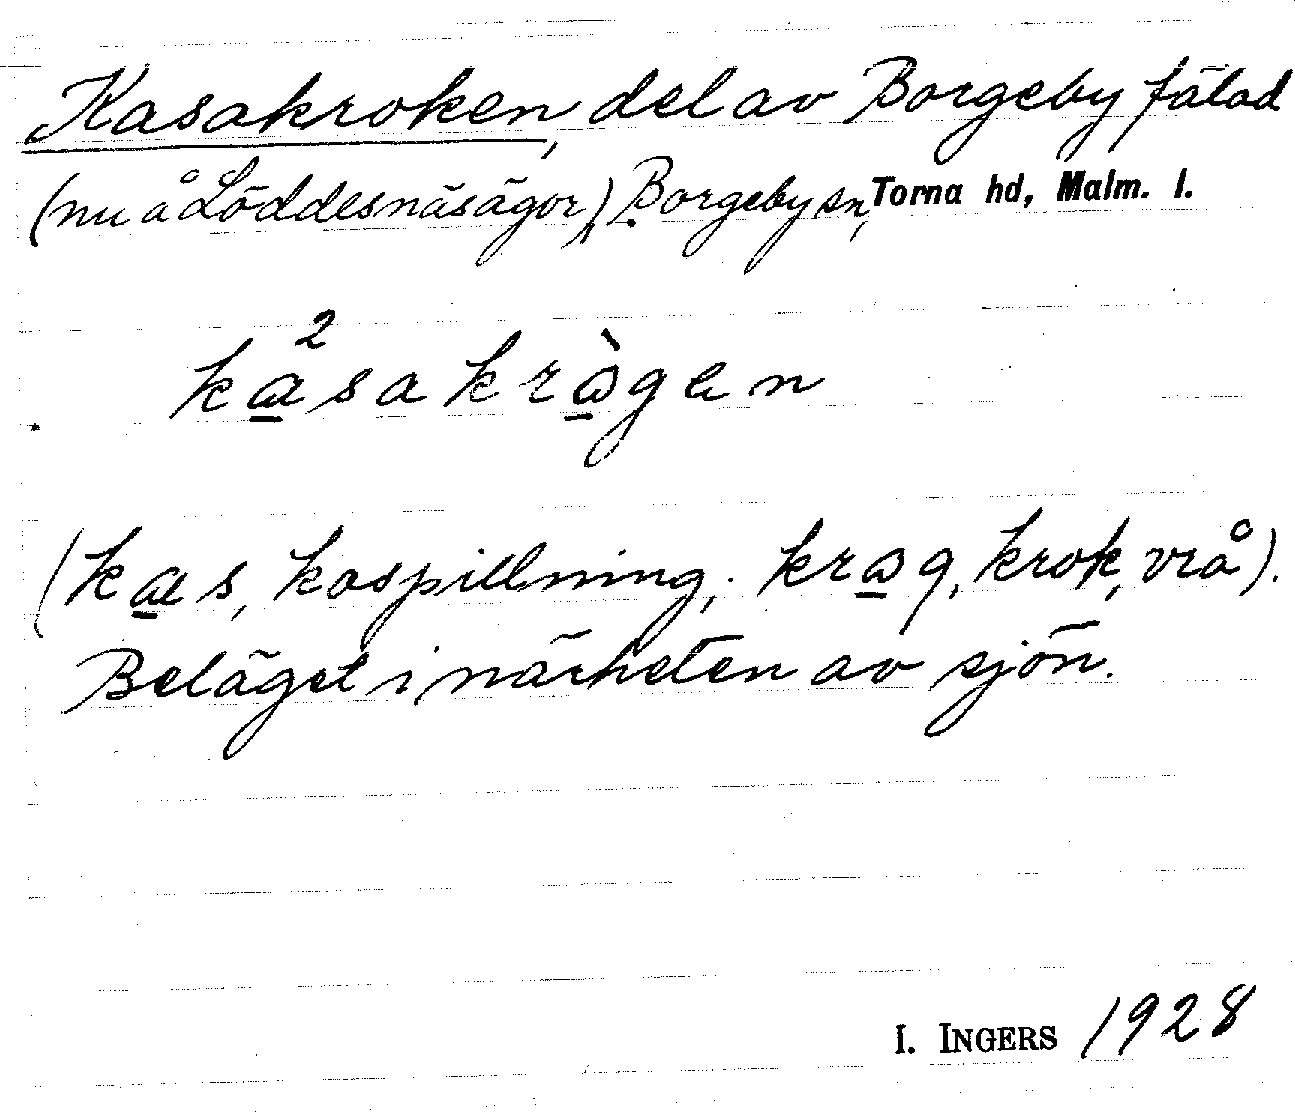 Kasakroken, del av Borgeby fälad
(nu å Löddesnäsägor) Borgeby sn, Torna hd, Malm. l.
kα̱²sakrɷ̱̀gen
(kα̱s, kospillning; krɷ̱g, krok, vrå).
Beläget i närheten av sjön.
I. INGERS 1928